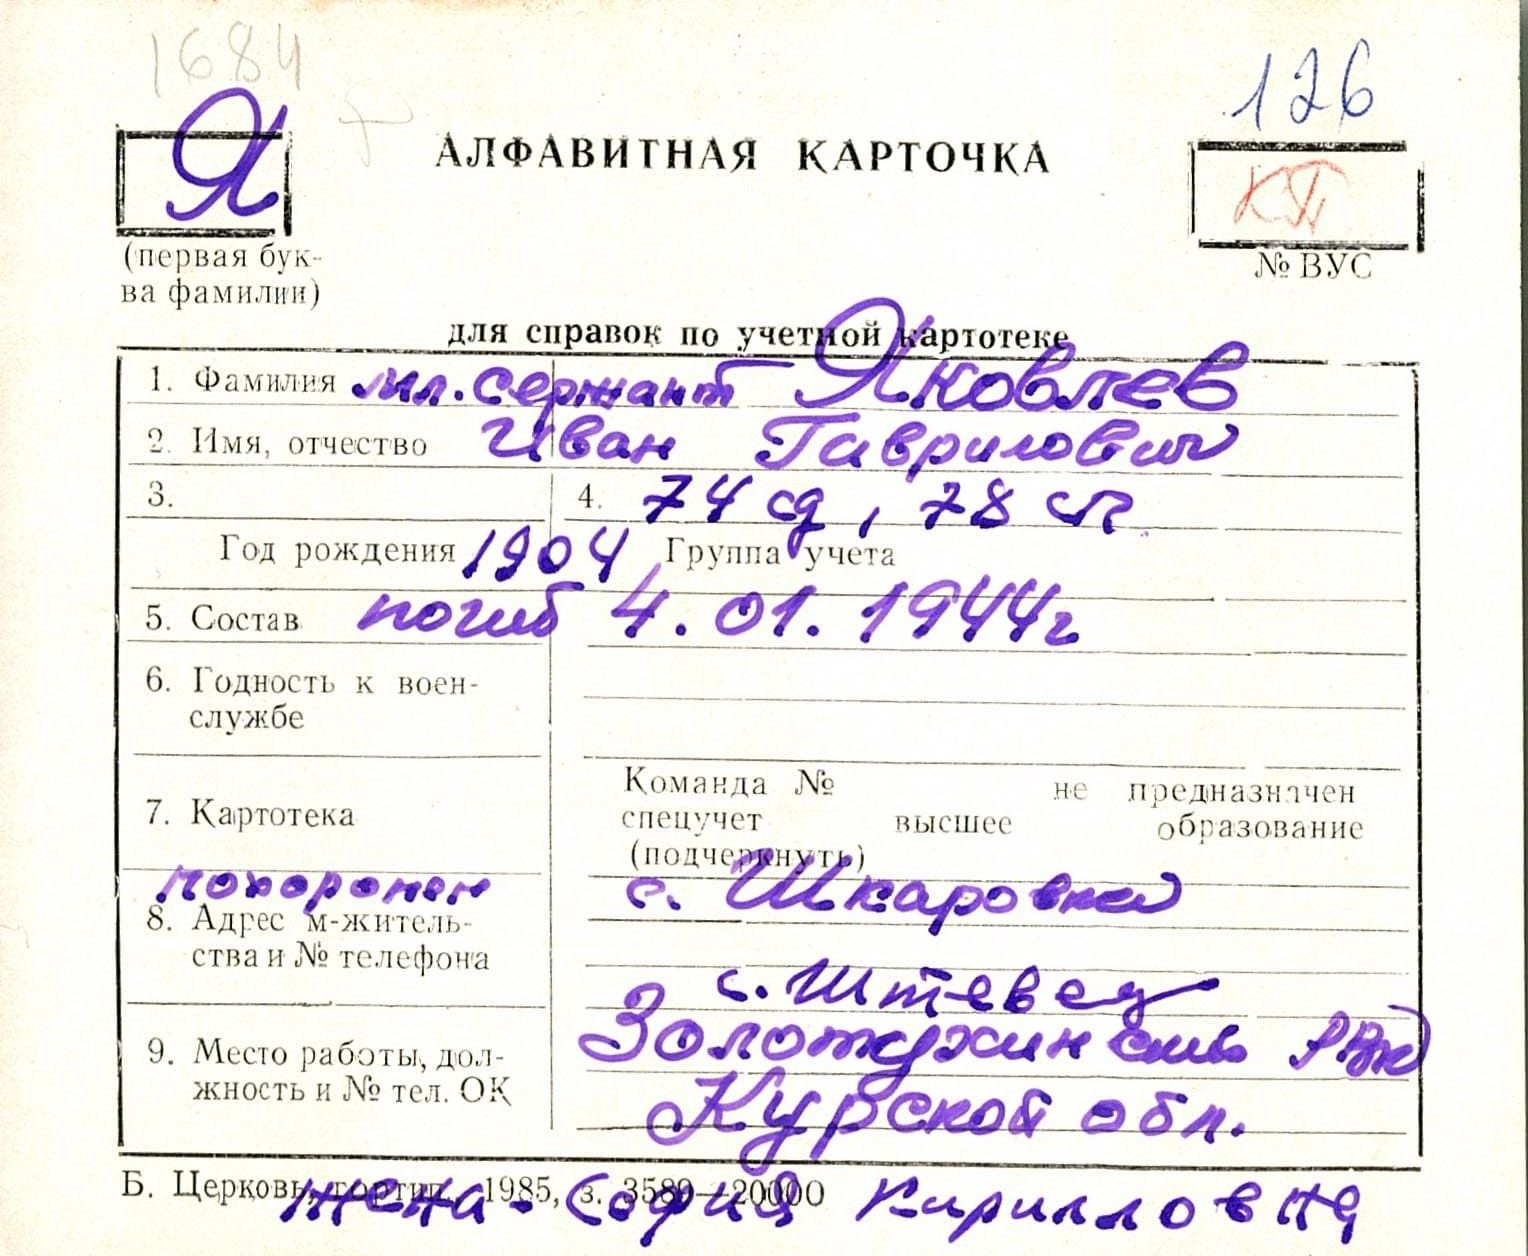 1684
126
Я
АЛФАВИТНАЯ КАРТОЧКА
КП
(первая бук-
ва фамилии)
№ ВУС
для справок по учетной картотеке
1. Фамилия мл. сержант Яковлев
2. Имя, отчество Иван Гаврилович
3. 4. 74 сд, 78 сп
Год рождения 1904 Группа учета
5. Состав погиб 4.01.1944г
6. Годность к воен-
службе
7. Картотека
Команда № не предназначен
спецучет высшее образование
(подчеркнуть)
похоронен с. Шкаровка
8. Адрес м-житель-
ства и № телефона
с. Штевец
Золотухинский РВК
9. Место работы, дол-
жность и № тел. ОК
Курской обл.
Б. Церковь, гортип., 1985, з. 3589—20000
жена - София Кирилловна